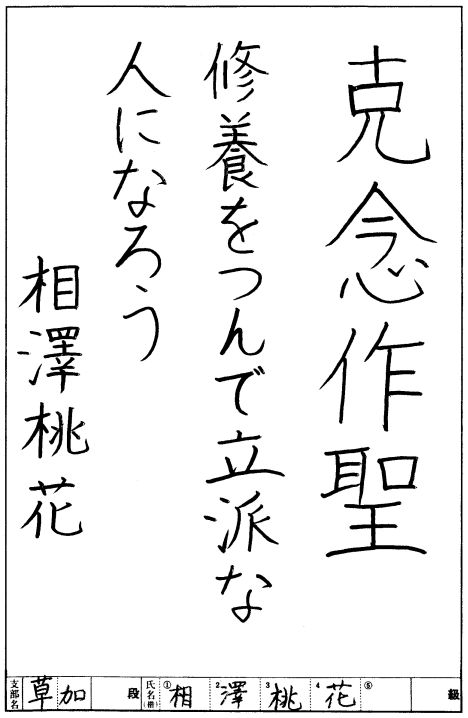 克念作聖
修養をつんで立派な
人になろう
相澤桃花
支部名 草加 段 氏名(楷) ①相 2澤 3桃 4花 ⑤ 級